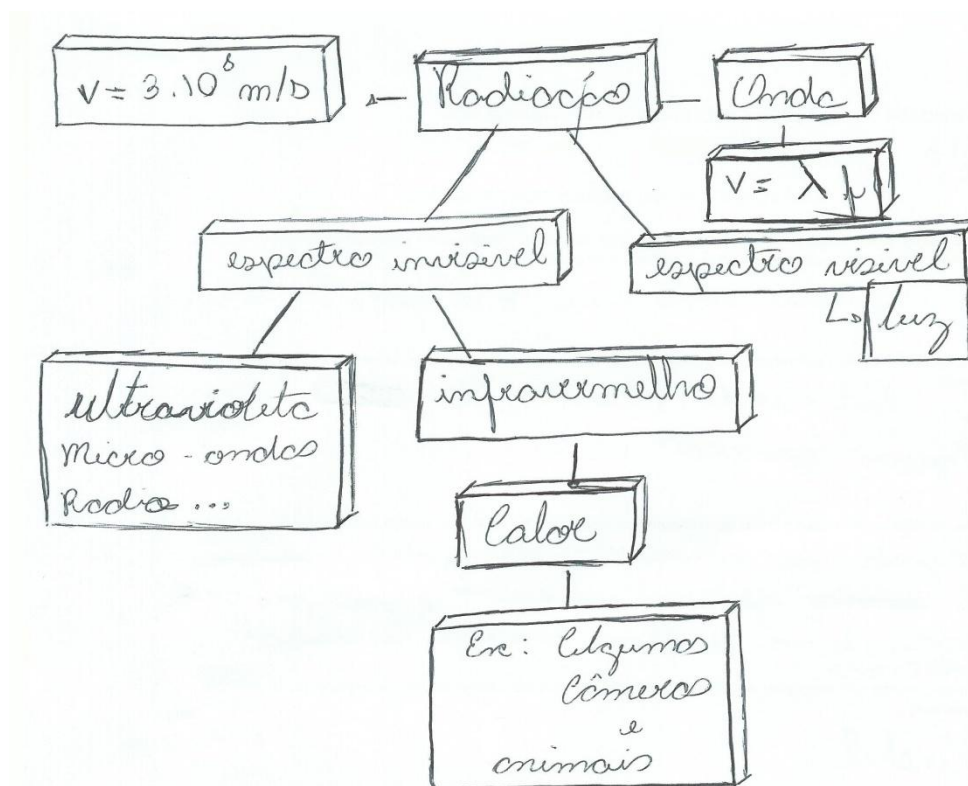 v = 3.10⁸ m/s
Radiação
Onda
v = λ f
espectro invisível
espectro visível
luz
ultravioleta
Micro-ondas
Radio ...
infravermelho
Calor
Ex: Algumas
Câmeras
e
animais